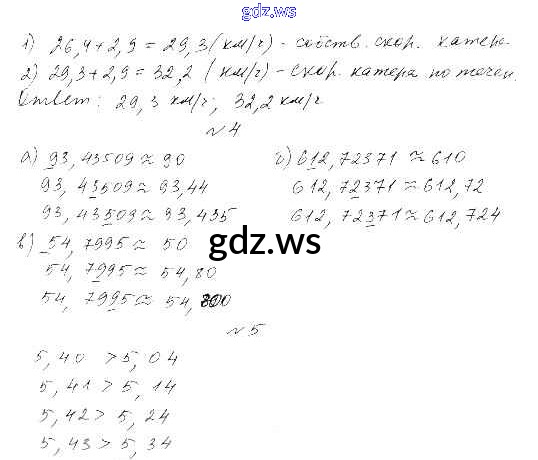 gdz.ws
1) 26,4 + 2,9 = 29,3 (км/ч) - собств. скор. катера.
2) 29,3 + 2,9 = 32,2 (км/ч) - скор. катера по течен.
Ответ: 29,3 км/ч; 32,2 км/ч
№4
а) 93,43509 ≈ 90
93,43509 ≈ 93,44
93,43509 ≈ 93,435
б) 612,72371 ≈ 610
612,72371 ≈ 612,72
612,72371 ≈ 612,724
в) 54,7995 ≈ 50
54,7995 ≈ 54,80
54,7995 ≈ 54,800
gdz.ws
№5
5,40 > 5,04
5,41 > 5,14
5,42 > 5,24
5,43 > 5,34